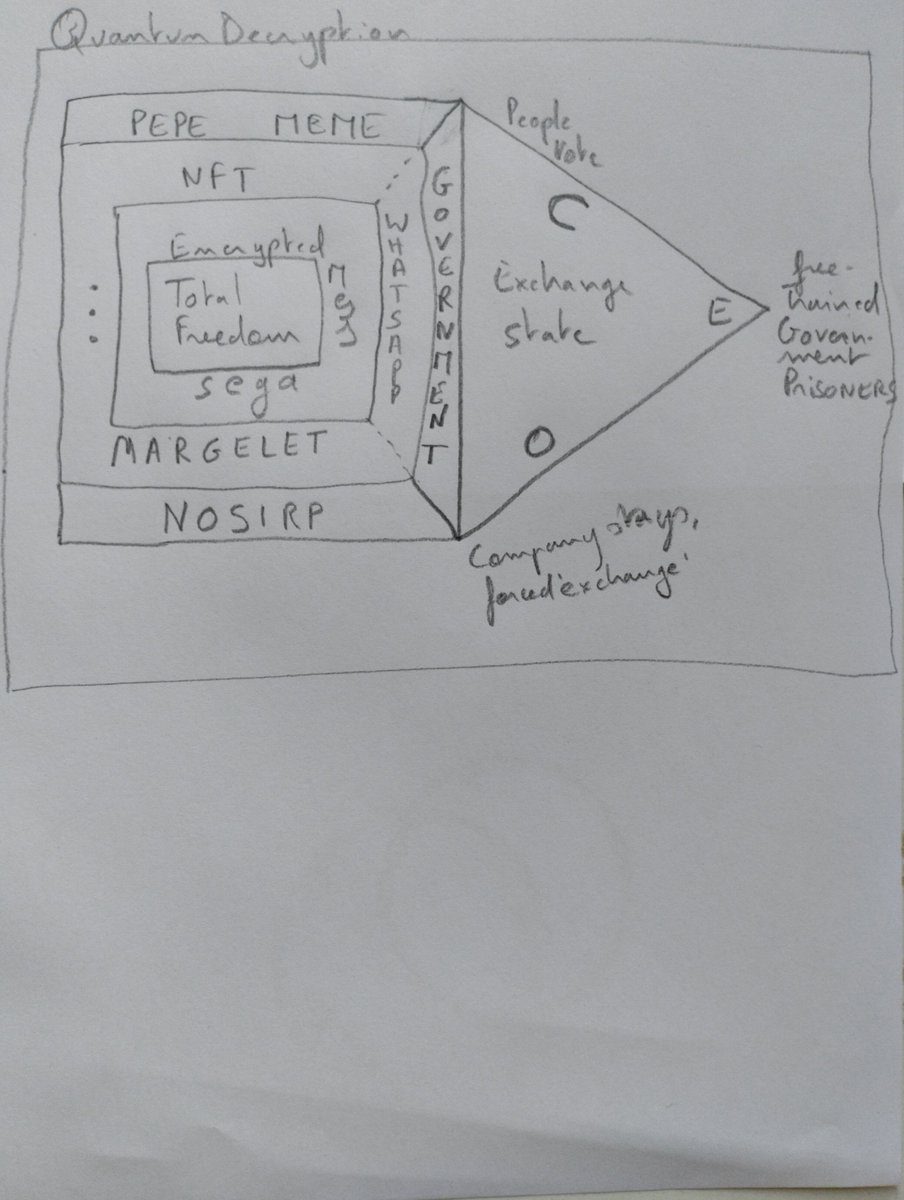 Quantum Decryption
PEPE MEME
NFT
Encrypted
Mess
sega
Total
Freedom
WHATSAPP
GOVERNMENT
MARGELET
NOSIRP
People
Vote
C
Exchange
state
E
O
free-
Govern-
ment
PRISONERS
Company stays,
forced 'exchange'